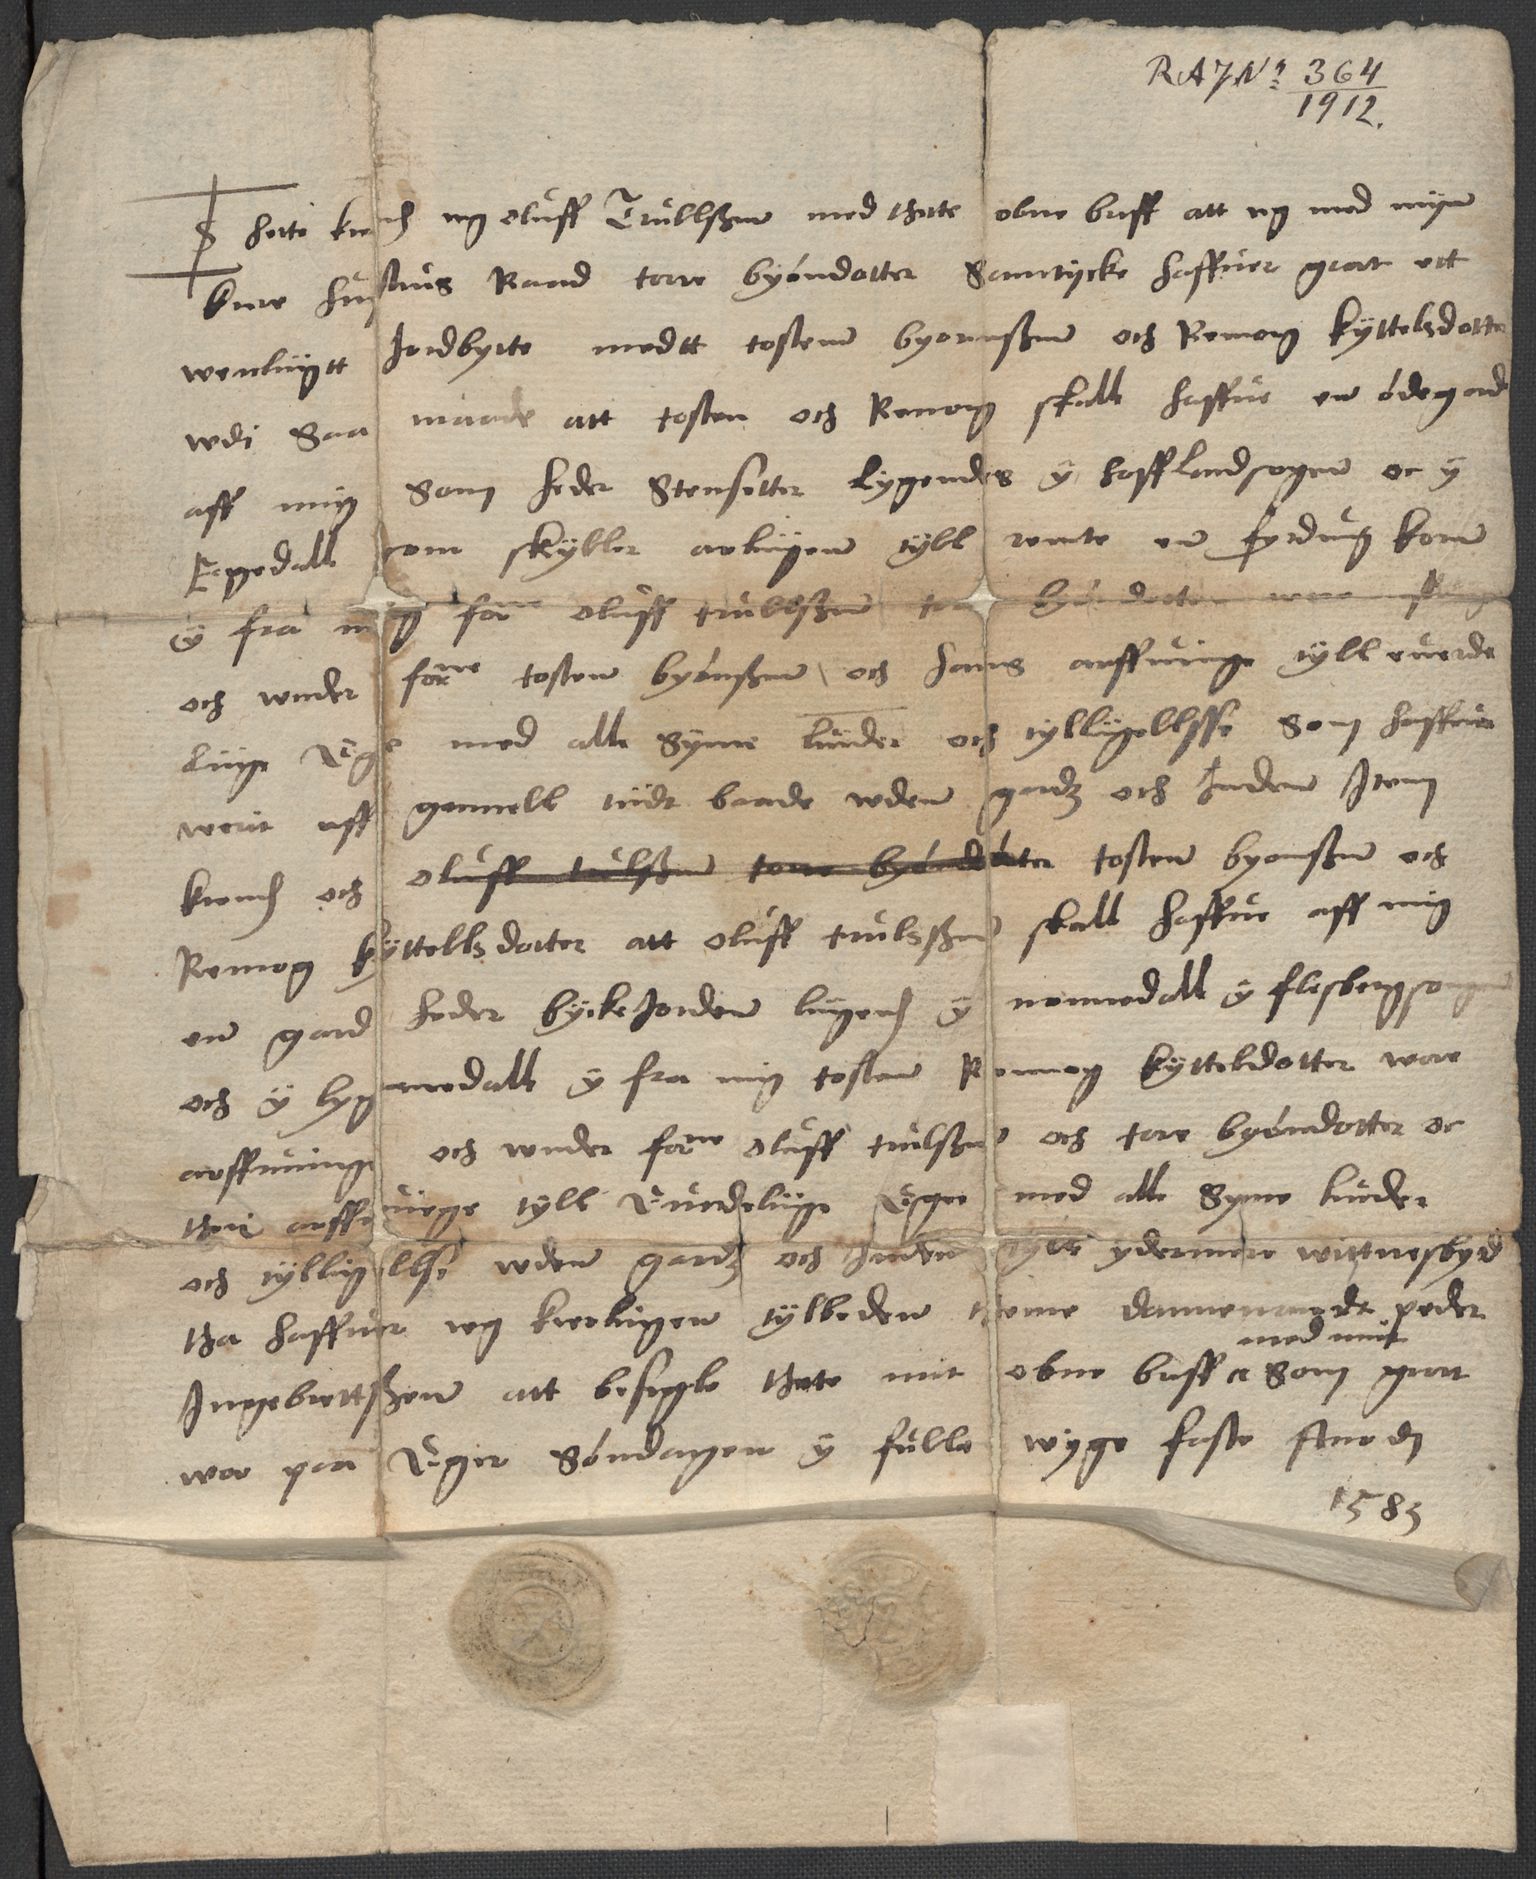 RAJ No 364
1912.
hete kiend ieg oluff Trullssen med thette obne breff att ieg med myn
kiere hustrus Raad torre byóndatter Samtycke haffuer giort ett
wenligtt Jordbytte medtt tosten byornssen och Remog kyttelsdotter
wdi Saa maade att tosten och Remog skall haffue en ódegard
aff mig Som heder Stensetter lygendes ÿ hofflandsogen oc ÿ
Egedall som skyller aarligen tyll rente en fyrding korn
ÿ fra mig forne oluff trullssen torre byóndatter wore
och wnder forne tosten byónssen och hans arffuinge tyll euerde
lige Eÿe med alle Syne luder och tylligellsse Som haffuer
werit aff gammell tidt baade wden gardz och Inden Item
kiend och oluff trulssen torre byóndatter tosten byonssen och
Remog kyttellsdotter att oluff trulssen skall haffue aff mig
en gard heder byckeJorden ligend ÿ nommedall ÿ flesbergsogen
och ÿ lyg medall ÿ fra mig tosten Remog kytteldotter wore
arffuinge och wnder forne oluff trulssen och tore byóndotter oc
theris arffuige tyll Euerdelige Eÿee med alle Syne luder
och tylligellse wden gardz och Inden tyll ydermere wittnesbyrd
tha haffuer ieg kierligen tylbeden theme dannemandt peder
med mit
Ingebrettssen att besegle thette mit obne breff Som giort
wor paa Eger Sóndagen ÿ fulle wyge faste Anno dj
1583